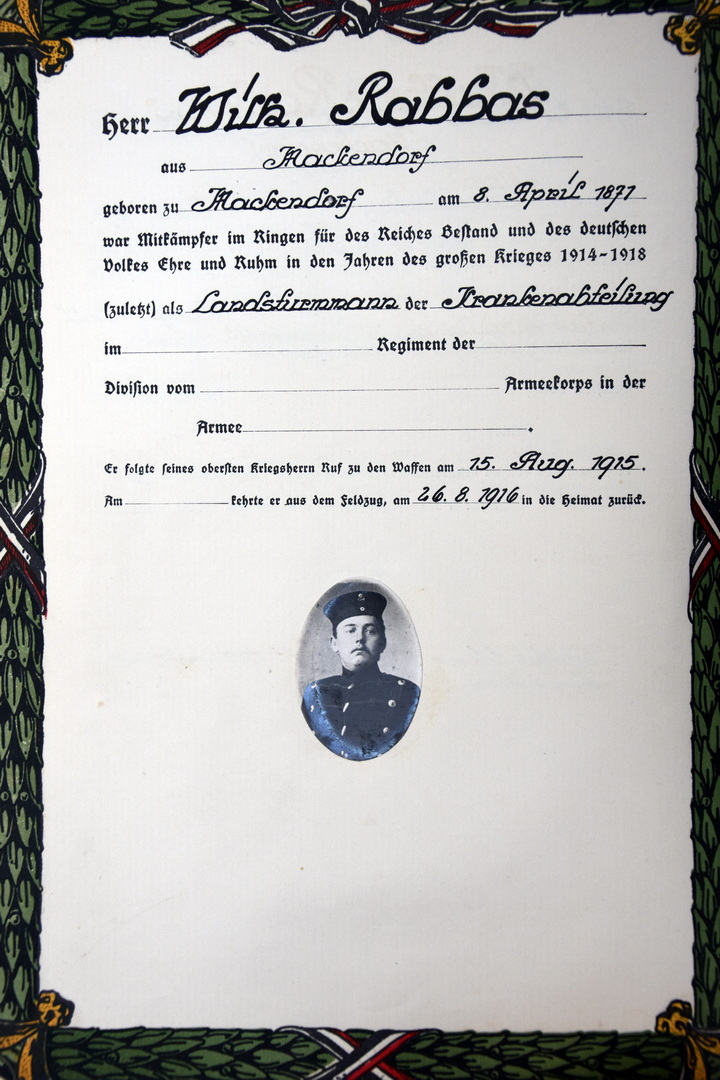 Herr Wilh. Rabbas
aus Mackendorf
geboren zu Mackendorf am 8. April 1871
war Mitkämpfer im Ringen für des Reiches Bestand und des deutschen
Volkes Ehre und Ruhm in den Jahren des großen Krieges 1914-1918
(zuletzt) als Landsturmmann der Krankenabteilung
im Regiment der
Division vom Armeekorps in der
Armee .
Er folgte seines obersten Kriegsherrn Ruf zu den Waffen am 15. Aug. 1915.
Am kehrte er aus dem Feldzug, am 26. 8. 1916 in die Heimat zurück.